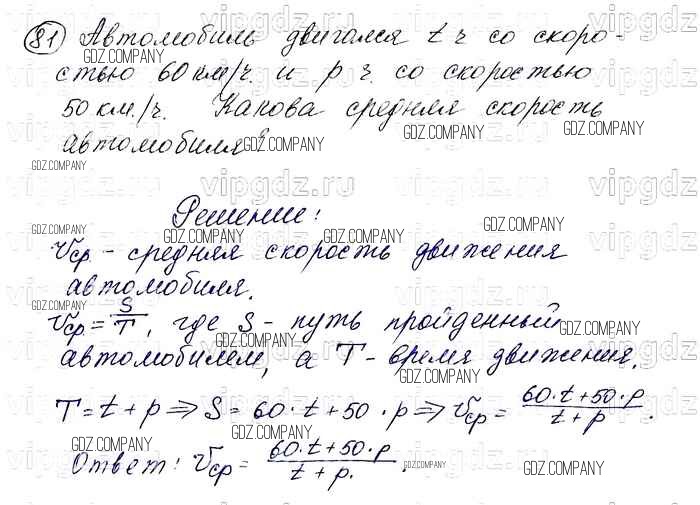 81 Автомобиль двигался t ч со скоро-
стью 60 км/ч и p ч. со скоростью
50 км./ч. Какова средняя скорость
автомобиля?
Решение:
Vср. - средняя скорость движения
автомобиля.
Vср = S/T, где S - путь пройденный
автомобилем, а T - время движения.
T = t + p ⇒ S = 60·t + 50·p ⇒ Vср = (60·t + 50·p)/(t + p).
Ответ: Vср = (60·t + 50·p)/(t + p.).